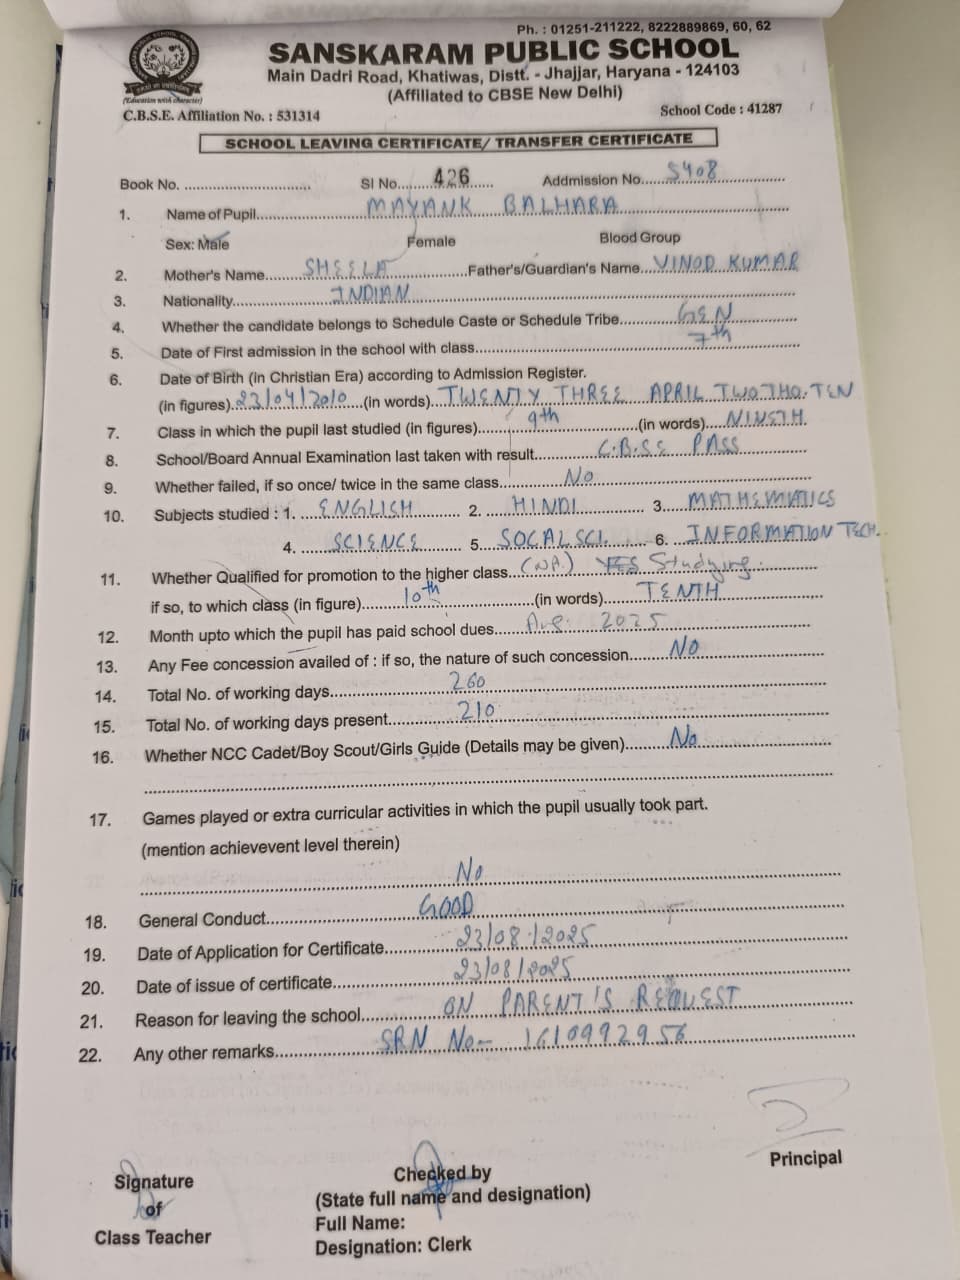 Ph. : 01251-211222, 8222889869, 60, 62
SANSKARAM PUBLIC SCHOOL
Main Dadri Road, Khatiwas, Distt. - Jhajjar, Haryana - 124103
(Affiliated to CBSE New Delhi)
(Education with character)
C.B.S.E. Affiliation No. : 531314 School Code : 41287
SCHOOL LEAVING CERTIFICATE/ TRANSFER CERTIFICATE
Book No. .............................. SI No.......426...... Addmission No......5408................
1. Name of Pupil......MAYANK BALHARA......
Sex: Male Female Blood Group
2. Mother's Name......SHEELA......Father's/Guardian's Name...VINOD KUMAR
3. Nationality......INDIAN......
4. Whether the candidate belongs to Schedule Caste or Schedule Tribe......GEN......
5. Date of First admission in the school with class......7th......
6. Date of Birth (in Christian Era) according to Admission Register.
(in figures)..23/04/2010...(in words)..TWENTY THREE APRIL TWO THO. TEN
7. Class in which the pupil last studied (in figures)......9th......(in words)....NINETH.
8. School/Board Annual Examination last taken with result......C.B.S.E PASS......
9. Whether failed, if so once/ twice in the same class......No......
10. Subjects studied : 1. ....ENGLISH...... 2. ......HINDI...... 3.....MATHEMATICS
4. .....SCIENCE...... 5....SOCAL SCI....... 6. ..INFORMATION TECH.
11. Whether Qualified for promotion to the higher class...(NA.) YES Studying......
if so, to which class (in figure)......10th......(in words)......TENTH......
12. Month upto which the pupil has paid school dues......Aug. 2025......
13. Any Fee concession availed of : if so, the nature of such concession......No......
14. Total No. of working days......260......
15. Total No. of working days present......210......
16. Whether NCC Cadet/Boy Scout/Girls Guide (Details may be given)......No......
17. Games played or extra curricular activities in which the pupil usually took part.
(mention achievevent level therein)
......No......
18. General Conduct......GOOD......
19. Date of Application for Certificate......23/08/2025......
20. Date of issue of certificate......23/08/2025......
21. Reason for leaving the school......ON PARENT'S REQUEST......
22. Any other remarks......SRN No- 1610992956......
Principal
Signature
of
Class Teacher
Checked by
(State full name and designation)
Full Name:
Designation: Clerk